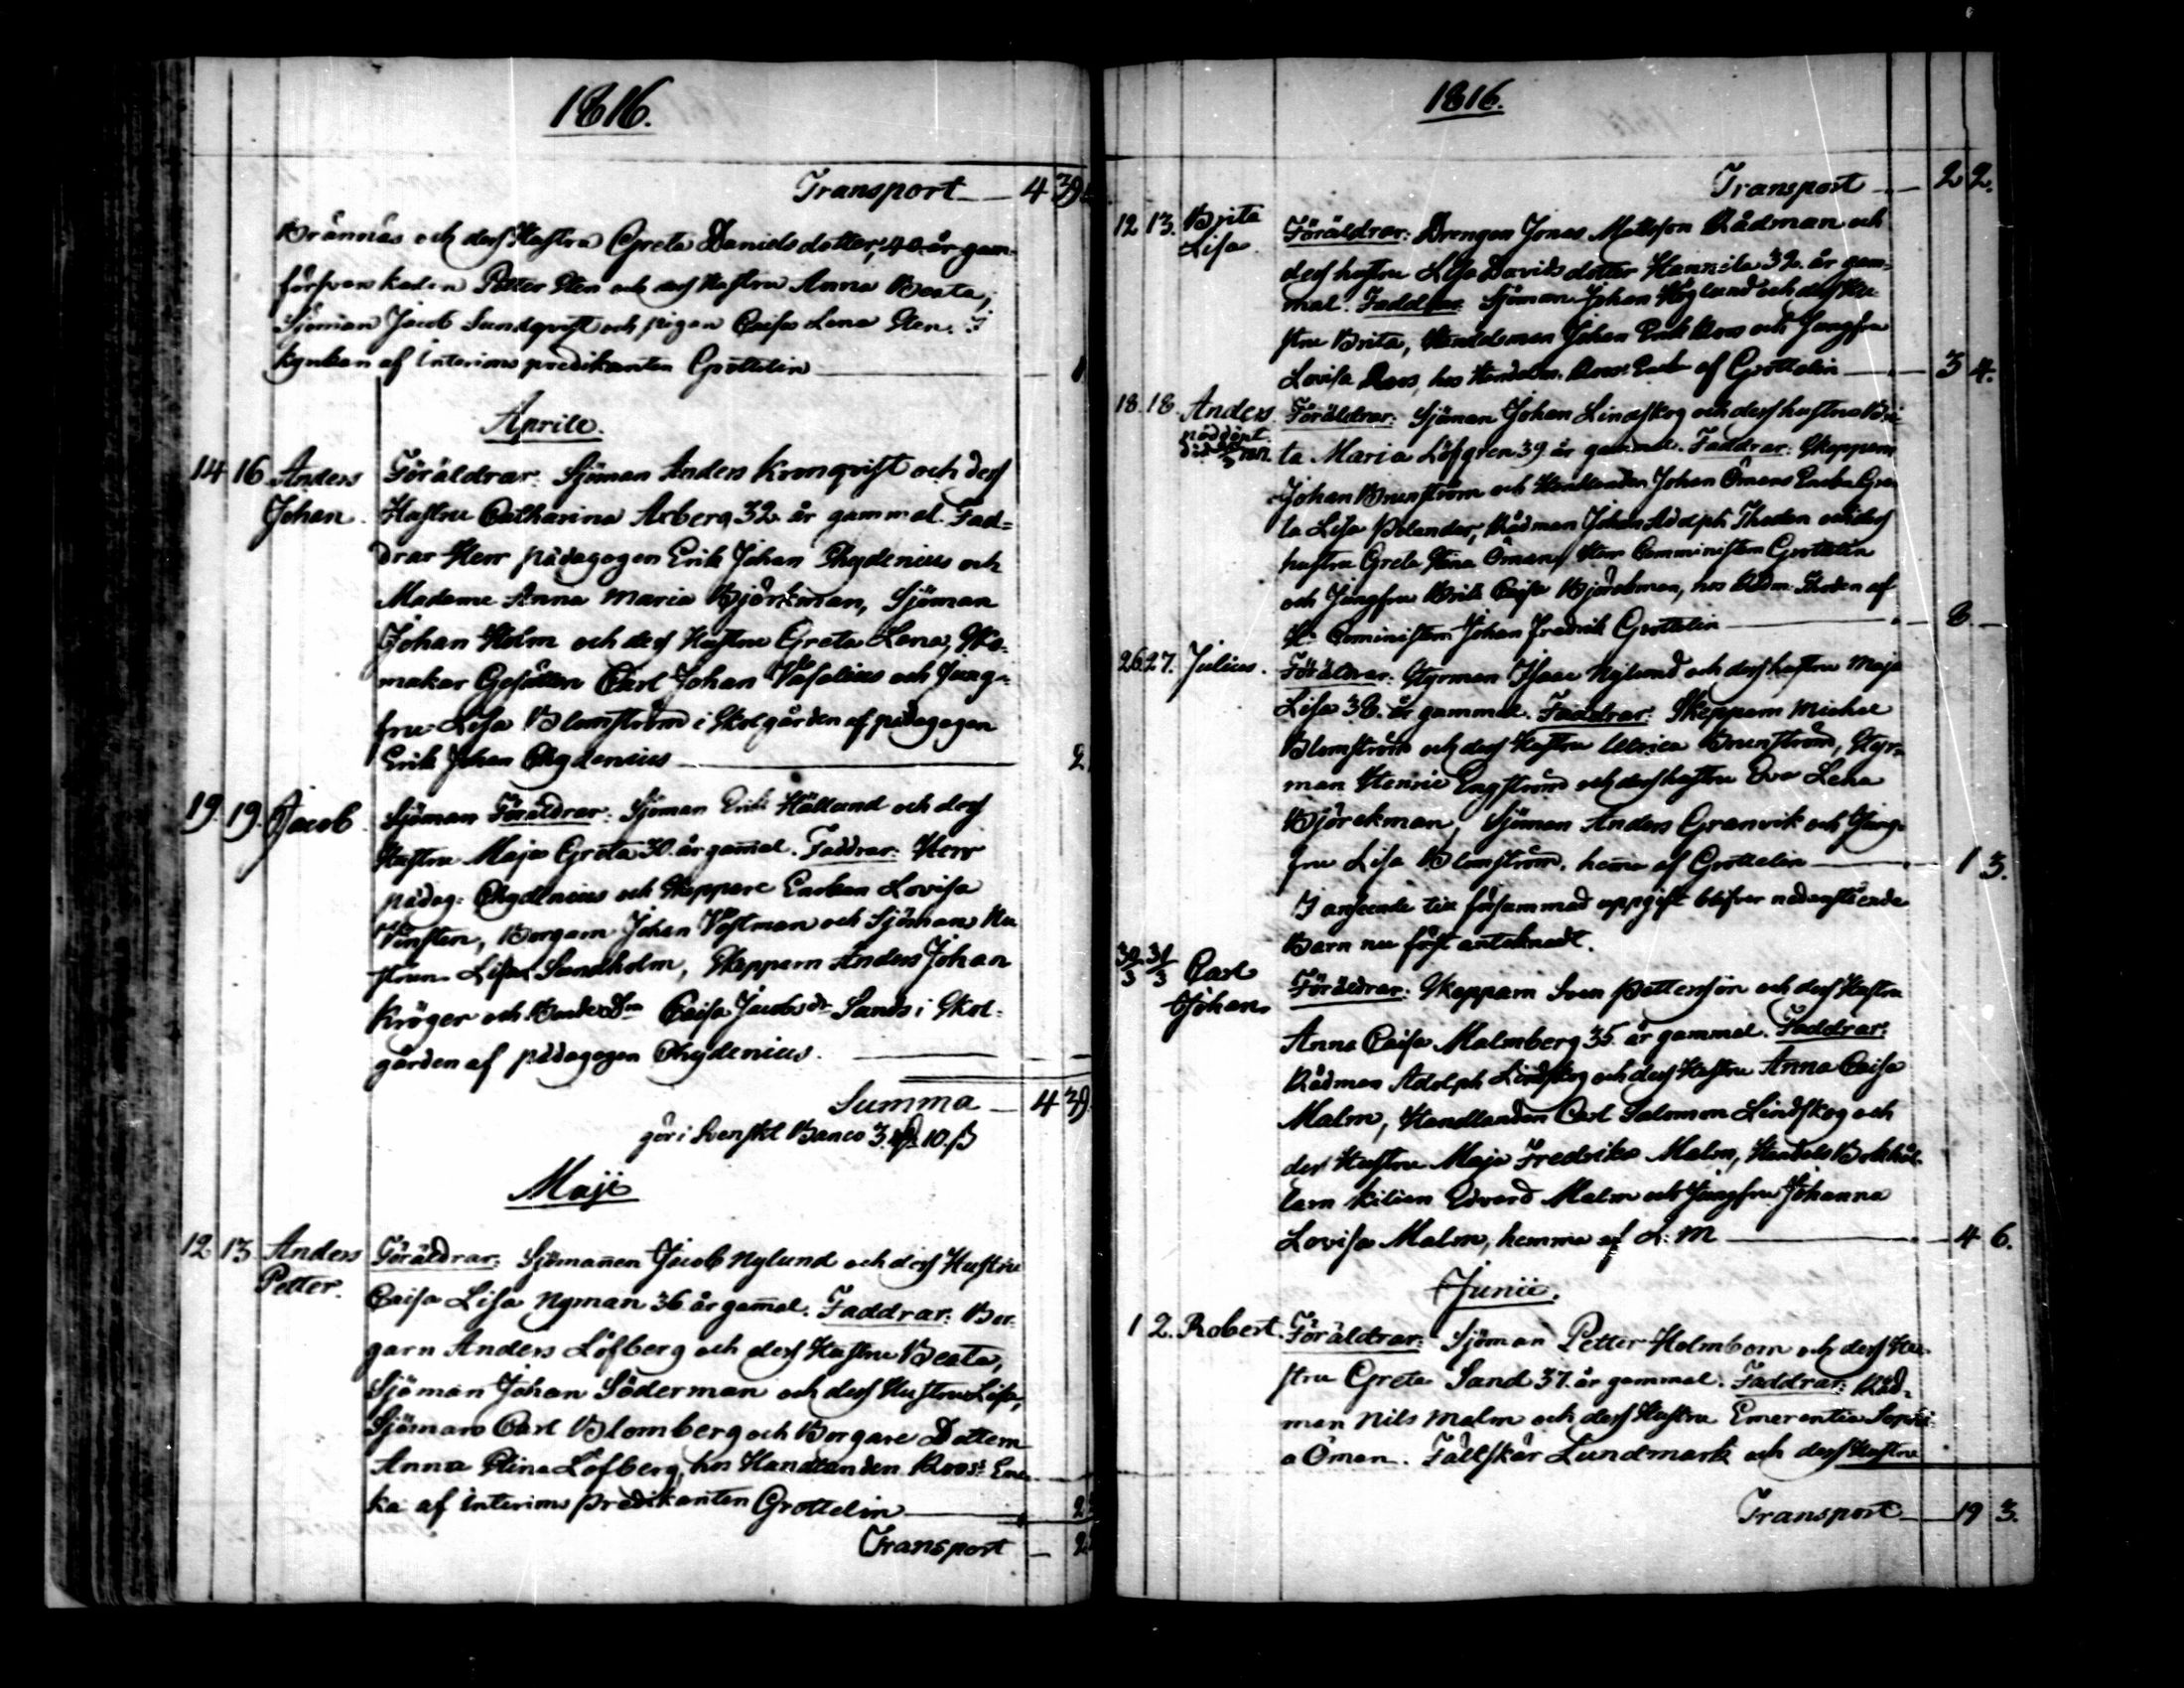 1816.
Transport 4 39
Brännäs och dess Hustru Greta Daniels dotter, 40 år gam.
försvarskarlen Petter Sten och dess Hustru Anna Beata,
Sjöman Jacob Sundqvist och pigan Caisa Lena Sten. I
kyrkan af Interims predikanten Grottelin
Aprile.
14 16 Anders Föräldrar: Sjöman Anders Kronqvist och dess
Johan. Hustru Catharina Arberg 32 år gammal. Fad=
drar Herr pädagogen Erik Johan Chydenius och
Madame Anna Maria Björkman, Sjöman
Johan Holm och dess Hustru Greta Lena, Sko=
makar Gesällen Carl Johan Vasalius och Jung=
fru Lisa Blomström i Skolgården af pädagogen
Erik Johan Chydenius 2
19. 19. Jacob Sjöman Föräldrar: Sjöman Erik Hällund och dess
Hustru Maja Greta 30. år gam̄al. Faddrar: Herr
pädag: Chydenius och Skeppare Enkan Lovisa
Vinsten, Borgarn Johan Vestman och Sjöman Hu
strun Lisa Sundholm, Skepparn Anders Johan
Kröger och Caisa Jacobsdr Sands i Skol=
gården af pädagogen Chydenius.
Summa 4 39.
gör i Svenskt Banco 3. 10. ß
Maji
12 13 Anders Föräldrar: Sjömannen Jacob Nylund och dess Hustru
Petter. Caisa Lisa Nyman 36 år gam̄al. Faddrar: Bor=
garn Anders Löfberg och dess Hustru Beata,
Sjöman Johan Söderman och dess Hustru Lisa,
Sjöman Carl Blomberg och Borgare Dottern
Anna Stina Löfberg, hos Handlanden Roos: En
ka af Interims predikanten Grottelin 2
Transport 2
1816.
Transport 2 2.
12 13. Brita Föräldrar: Drengen Jonas Mattsson Rådman och
Lisa. dess hustru Lisa Davids dotter Hannila 32. år gam=
mal. Faddrar: Sjöman Johan Höglund och dess Hu
stru Brita, Handelsman Johan Erik Roos och Jungfru
Lovisa Roos, hos Handelsm. Roos: Enka af Grottelin 3 4.
18. 18. Anders Föräldrar: Sjöman Johan Lindskog och dess hustru Bri
nöddöpt ta Maria Löfgren 39 år gammal. Faddrar: Skepparn
Johan Brunström och Handlanden Johan Ömans Enka Gre
ta Lisa Polander, Rådman Johan Adolph Thoden och dess
hustru Greta Stina Öman, Herr Comministern Grottelin
och Jungfru Brita Caisa Björckman, hos Rådm: Thoden af
H: Cominister Johan Fredrik Grottelin 8
26 27. Julius. Föräldrar: Styrman Isaac Nylund och dess hustru Maja
Lisa 38. år gammal. Faddrar: Skepparn Michel
Blomström och dess Hustru Ulrica Brunström, Styr=
man Henric Engström och dess hustru Eva Lena
Björckman, Sjöman Anders Granvik och Jung=
fru Lisa Blomström, hem̄a af Grottelin 1 3.
I anseende till försummad uppgift blifver nedanstående
Barn nu först antecknadt.
30/3 31/3 Carl Föräldrar: Skepparn Sven Petterson och dess Hustru
Johan Anna Caisa Malmberg 35 år gammal. Faddrar:
Rådman Adolph Lindskog och dess Hustru Anna Caisa
Malm, Handlanden Carl Salomon Lindskog och
dess Hustru Maja Fredrika Malm, Handels Bokhål=
larn Kilian Edvard Malm och Jungfru Johanna
Lovisa Malm, hemma af L: M 4 6.
Junii.
1 2. Robert. Föräldrar: Sjöman Petter Holmbom och dess Hu=
stru Greta Sand 37. år gammal. Faddrar: Råd=
man Nils Malm och dess Hustru Emerentia Sophi=
a Öman. Fältskär Lundmark och dess Hustru
Transport 19 3.